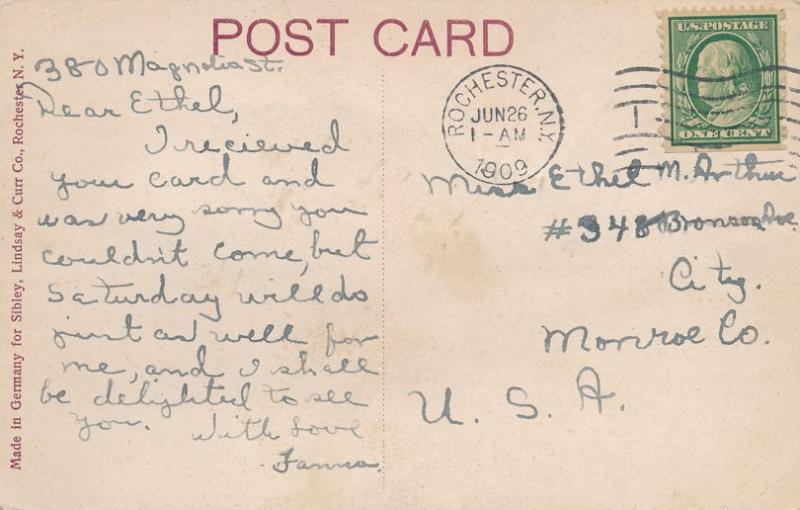 POST CARD
Made in Germany for Sibley, Lindsay & Curr Co., Rochester, N. Y.
380 Magnolia St.
Dear Ethel,
I recieved
your card and
was very sorry you
couldn't come, but
Saturday will do
just as well for
me, and I shall
be delighted to see
you. With Love
U.S. POSTAGE
ONE CENT
ROCHESTER, N.Y.
JUN 26
1 - AM
1909
1
Miss Ethel M. Arthur
#348 Bronson Ave.
City.
Monroe Co.
U. S. A.